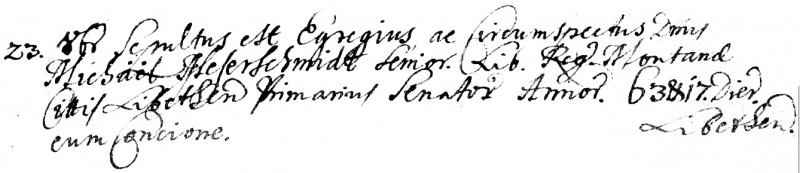 23. 8br Sepultus est Egregius ac Circumspectus Dnus
Michäel Meserschmidt Senior. Lib. Reg. Montanæ
Cittis Libethen Primarius Senator Annor. 63 & 17. Dier.
cum Concione. Libethen.